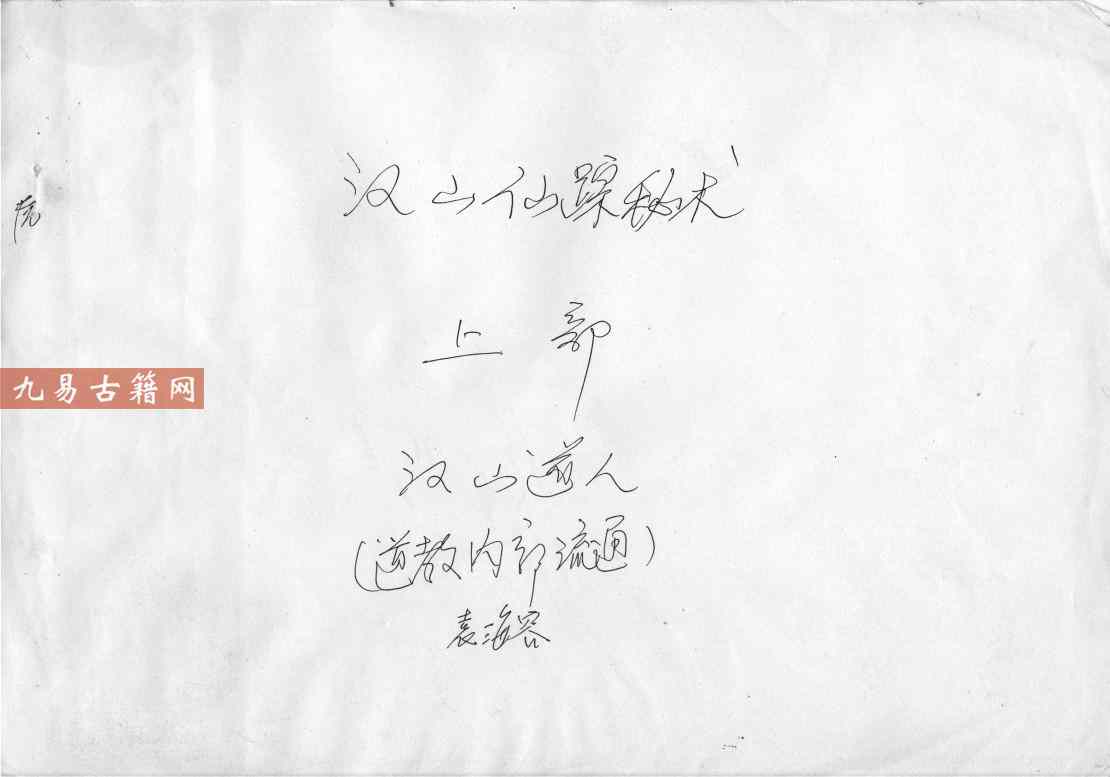 汉山仙踪秘术
上部
九易古籍网
汉山道人
(道教内部流通)
袁海容